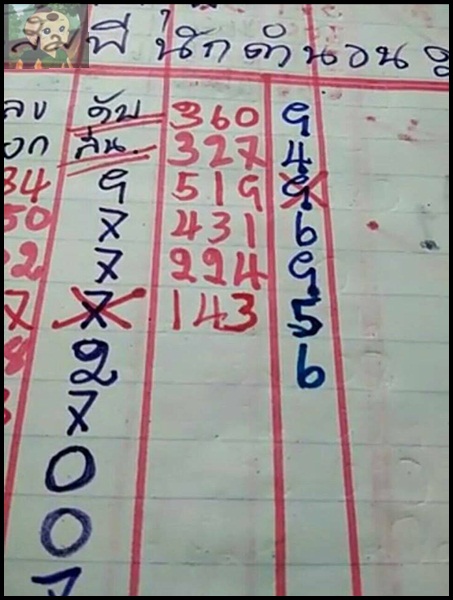 พี นักคำนวน
ลข ดับ 360 9
อก สิน. 327 4
34 9 519 9
50 7 431 6
2 7 224 9
7 7 143 5
2 6
7
0
0